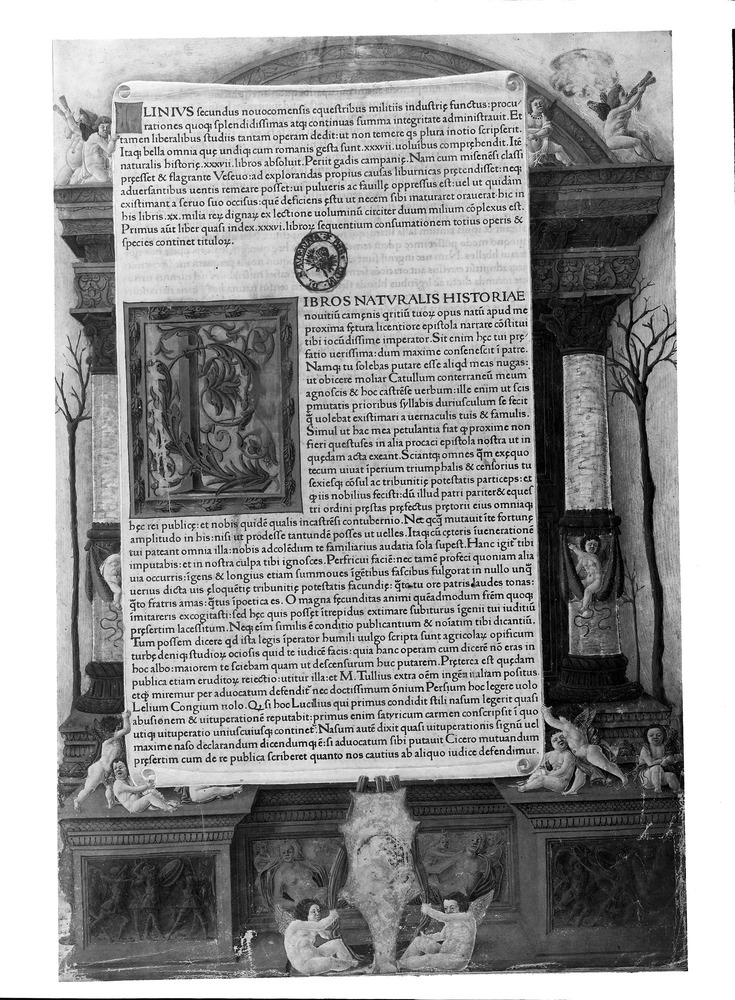 PLINIVS secundus nouocomensis equestribus militiis industrię functus: procu/
rationes quoqꝫ splendidissimas atqꝫ continuas summa integritate administrauit. Et
tamen liberalibus studiis tantam operam dedit: ut non temere qs plura in otio scripserit.
Itaqꝫ bella omnia quę undiqꝫ cum romanis gesta sunt .xxxvii. uoluibus comprehendit. Itē
naturalis historię .xxxvii. libros absoluit. Periit gadis campanię. Nam cum misenēsi classi
pręesset & flagrante Veseuo: ad explorandas propius causas liburnicas prętendisset: neqꝫ
aduersantibus uentis remeare posset: ui pulueris ac fauillę oppressus est: uel ut quidam
existimant a seruo suo occisus: quē deficiens ęstu ut necem sibi maturaret orauerat hic in
his libris .xx. milia reꝝ dignaꝝ ex lectione uoluminū circiter duum milium cōplexus est.
Primus aūt liber quasi index .xxxvi. libroꝝ sequentium consumationem totius operis &
species continet tituloꝝ.
LIBROS NATVRALIS HISTORIAE
nouitiū camęnis qritiū tuoꝝ opus natū apud me
proxima fętura licentiore epistola narrare cōstitui
tibi iocūdissime imperator. Sit enim hęc tui prę/
fatio uerissima: dum maxime consenescit ī patre.
Namqꝫ tu solebas putare esse aliqd meas nugas:
ut obicere moliar Catullum conterraneū meum
agnoscis & hoc castrēse uerbum: ille enim ut scis
pmutatis prioribus syllabis duriusculum se fecit
q̄ uolebat existimari a uernaculis tuis & famulis.
Simul ut hac mea petulantia fiat qd proxime non
fieri questus es in alia procaci epistola nostra ut in
quędam acta exeant. Sciantqꝫ omnes q̄m exęquo
tecum uiuat īperium triumphalis & censorius tu
sexiesqꝫ cōsul ac tribunitię potestatis particeps: et
qd iis nobilius fecisti: dū illud patri pariter & eques
tri ordini pręstas pręfectus pretorii eius omniaqꝫ
hęc rei publicę: et nobis quidē qualis in castrēsi contubernio. Nec qcq̄ mutauit īte fortunę
amplitudo in his: nisi ut prodesse tantundē posses ut uelles. Itaqꝫ cū cęteris ī uenerationē
tui pateant omnia illa: nobis ad colēdum te familiarius audatia sola supest. Hanc igit̄ tibi
imputabis: et in nostra culpa tibi ignosces. Perfricui faciē: nec tamē profeci quoniam alia
uia occurris: īgens & longius etiam summoues īgētibus fascibus fulgorat in nullo unq̄
uerius dicta uis eloquētię tribunitię potestatis facundię: q̄to tu ore patris laudes tonas:
q̄to fratris amas: q̄tus ī poetica es. O magna fęcunditas animi quēadmodum frēm quoqꝫ
imitareris excogitasti: sed hęc quis posset ītrepidus extimare subiturus īgenii tui iuditiū
pręsertim lacessitum. Neqꝫ eīm similis ē conditio publicantium & noīatim tibi dicantiū.
Tum possem dicere qd ista legis īperator humili uulgo scripta sunt agricolaꝝ opificum
turbę deniqꝫ studioꝝ ociosis quid te iudicē facis: quia hanc operam cum dicerē nō eras in
hoc albo: maiorem te sciebam quam ut descensurum huc putarem. Pręterea est quędam
publica etiam eruditoꝝ reiectio: utitur illa: et M. Tullius extra oēm ingenii aliam positus
etqd miremur per aduocatum defendit̄ nec doctissimum ōnium Persium hoc legere uolo
Lelium Congium uolo. Qd si hoc Lucilius qui primus condidit stili nasum legerit quasi
abusionem & uituperationē reputabit: primus enim satyricum carmen conscripsit ī quo
utiqꝫ uituperatio uniuscuiusqꝫ continet̄. Nasum autē dixit quasi uituperationis signū uel
maxime naso declarandum dicendumqꝫ ē: si aduocatum sibi putauit Cicero mutuandum
pręsertim cum de re publica scriberet quanto nos cautius ab aliquo iudice defendimur.